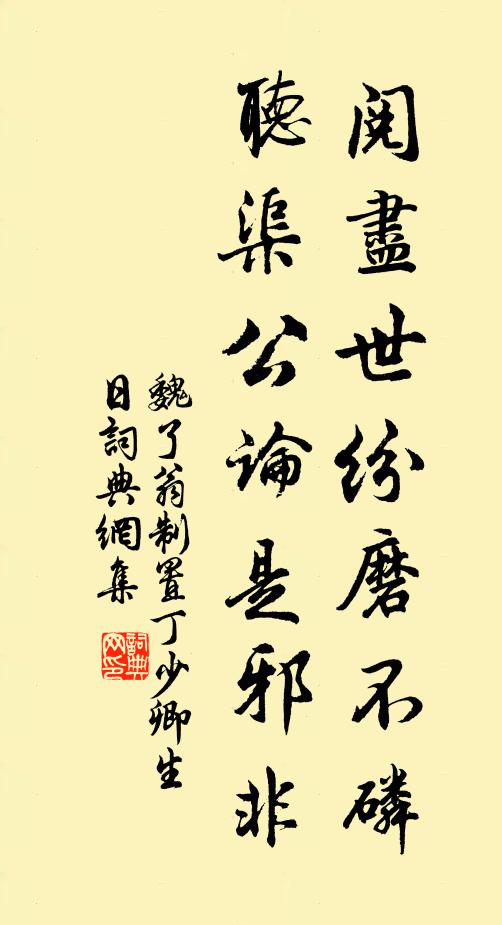 閱盡世紛磨不磷
聽渠公論是邪非
魏了翁制置丁少卿生
日詞典網集
詞典
网印